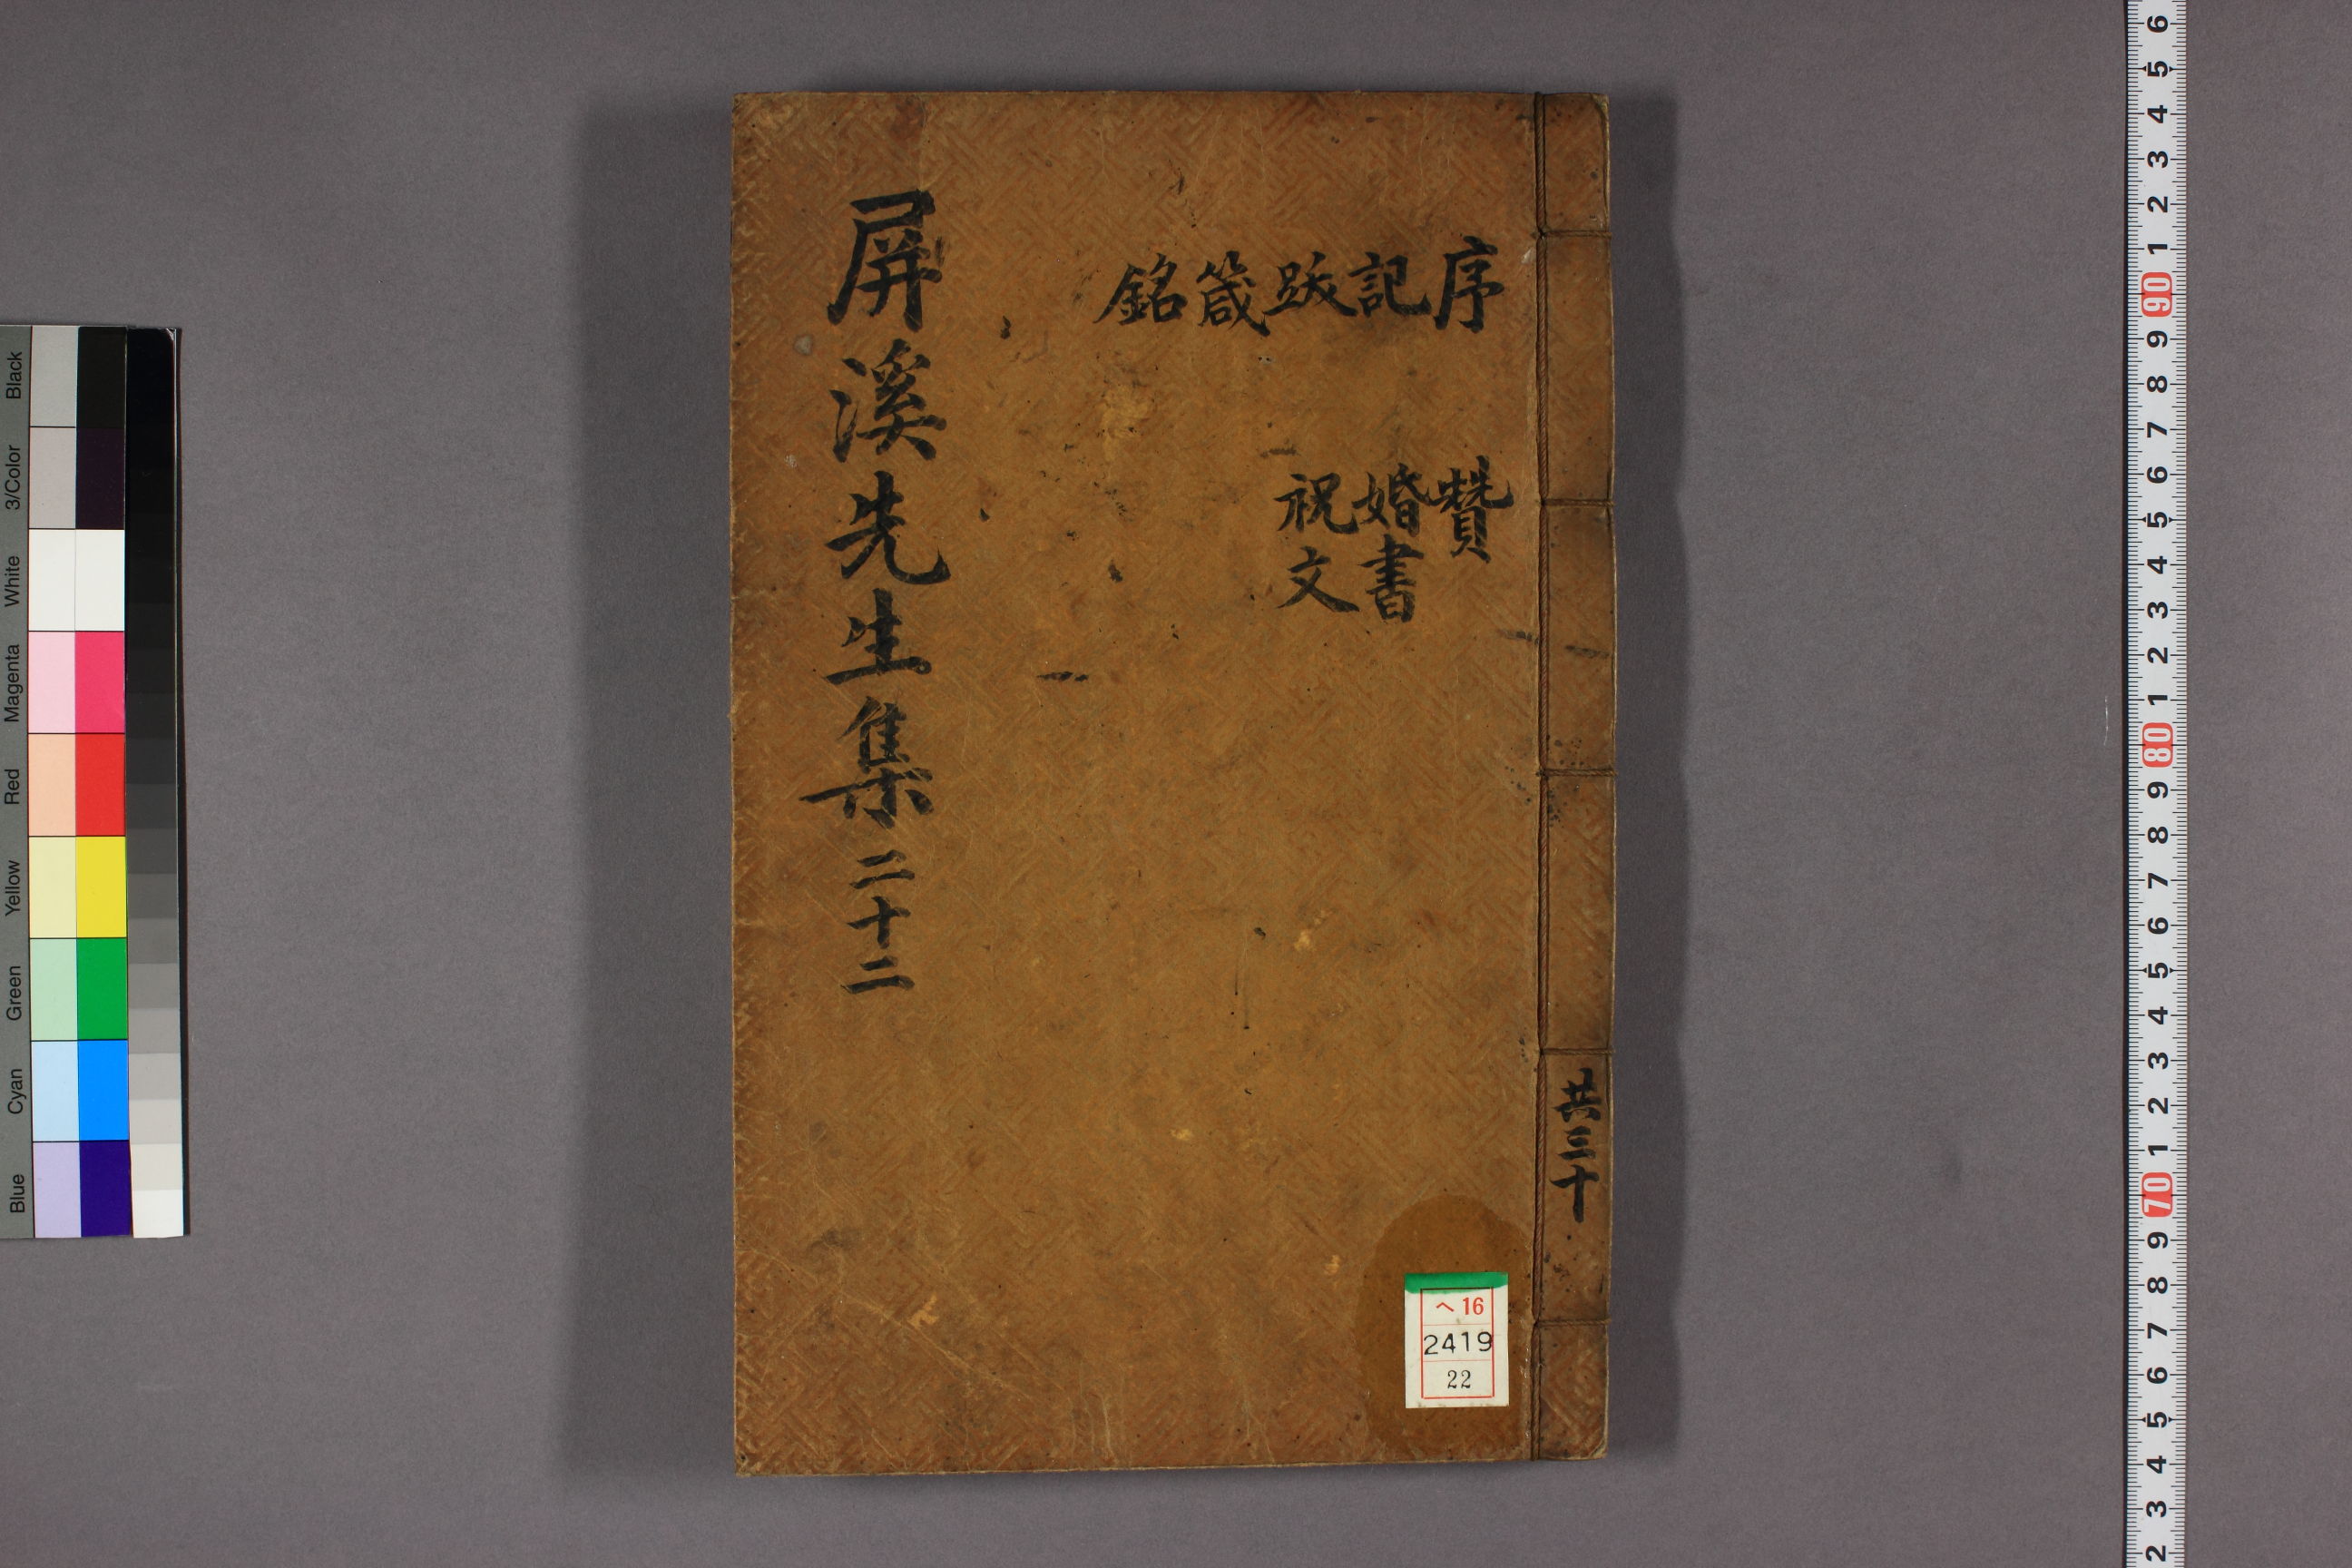 屏溪先生集 二十二
序記跋箴銘
贊婚書祝文
共三十
へ16
2419
22
Black
3/Color
White
Magenta
Red
Yellow
Green
Cyan
Blue
6
5
4
3
2
1
90
9
8
7
6
5
4
3
2
1
80
9
8
7
6
5
4
3
2
1
70
9
8
7
6
5
4
3
2